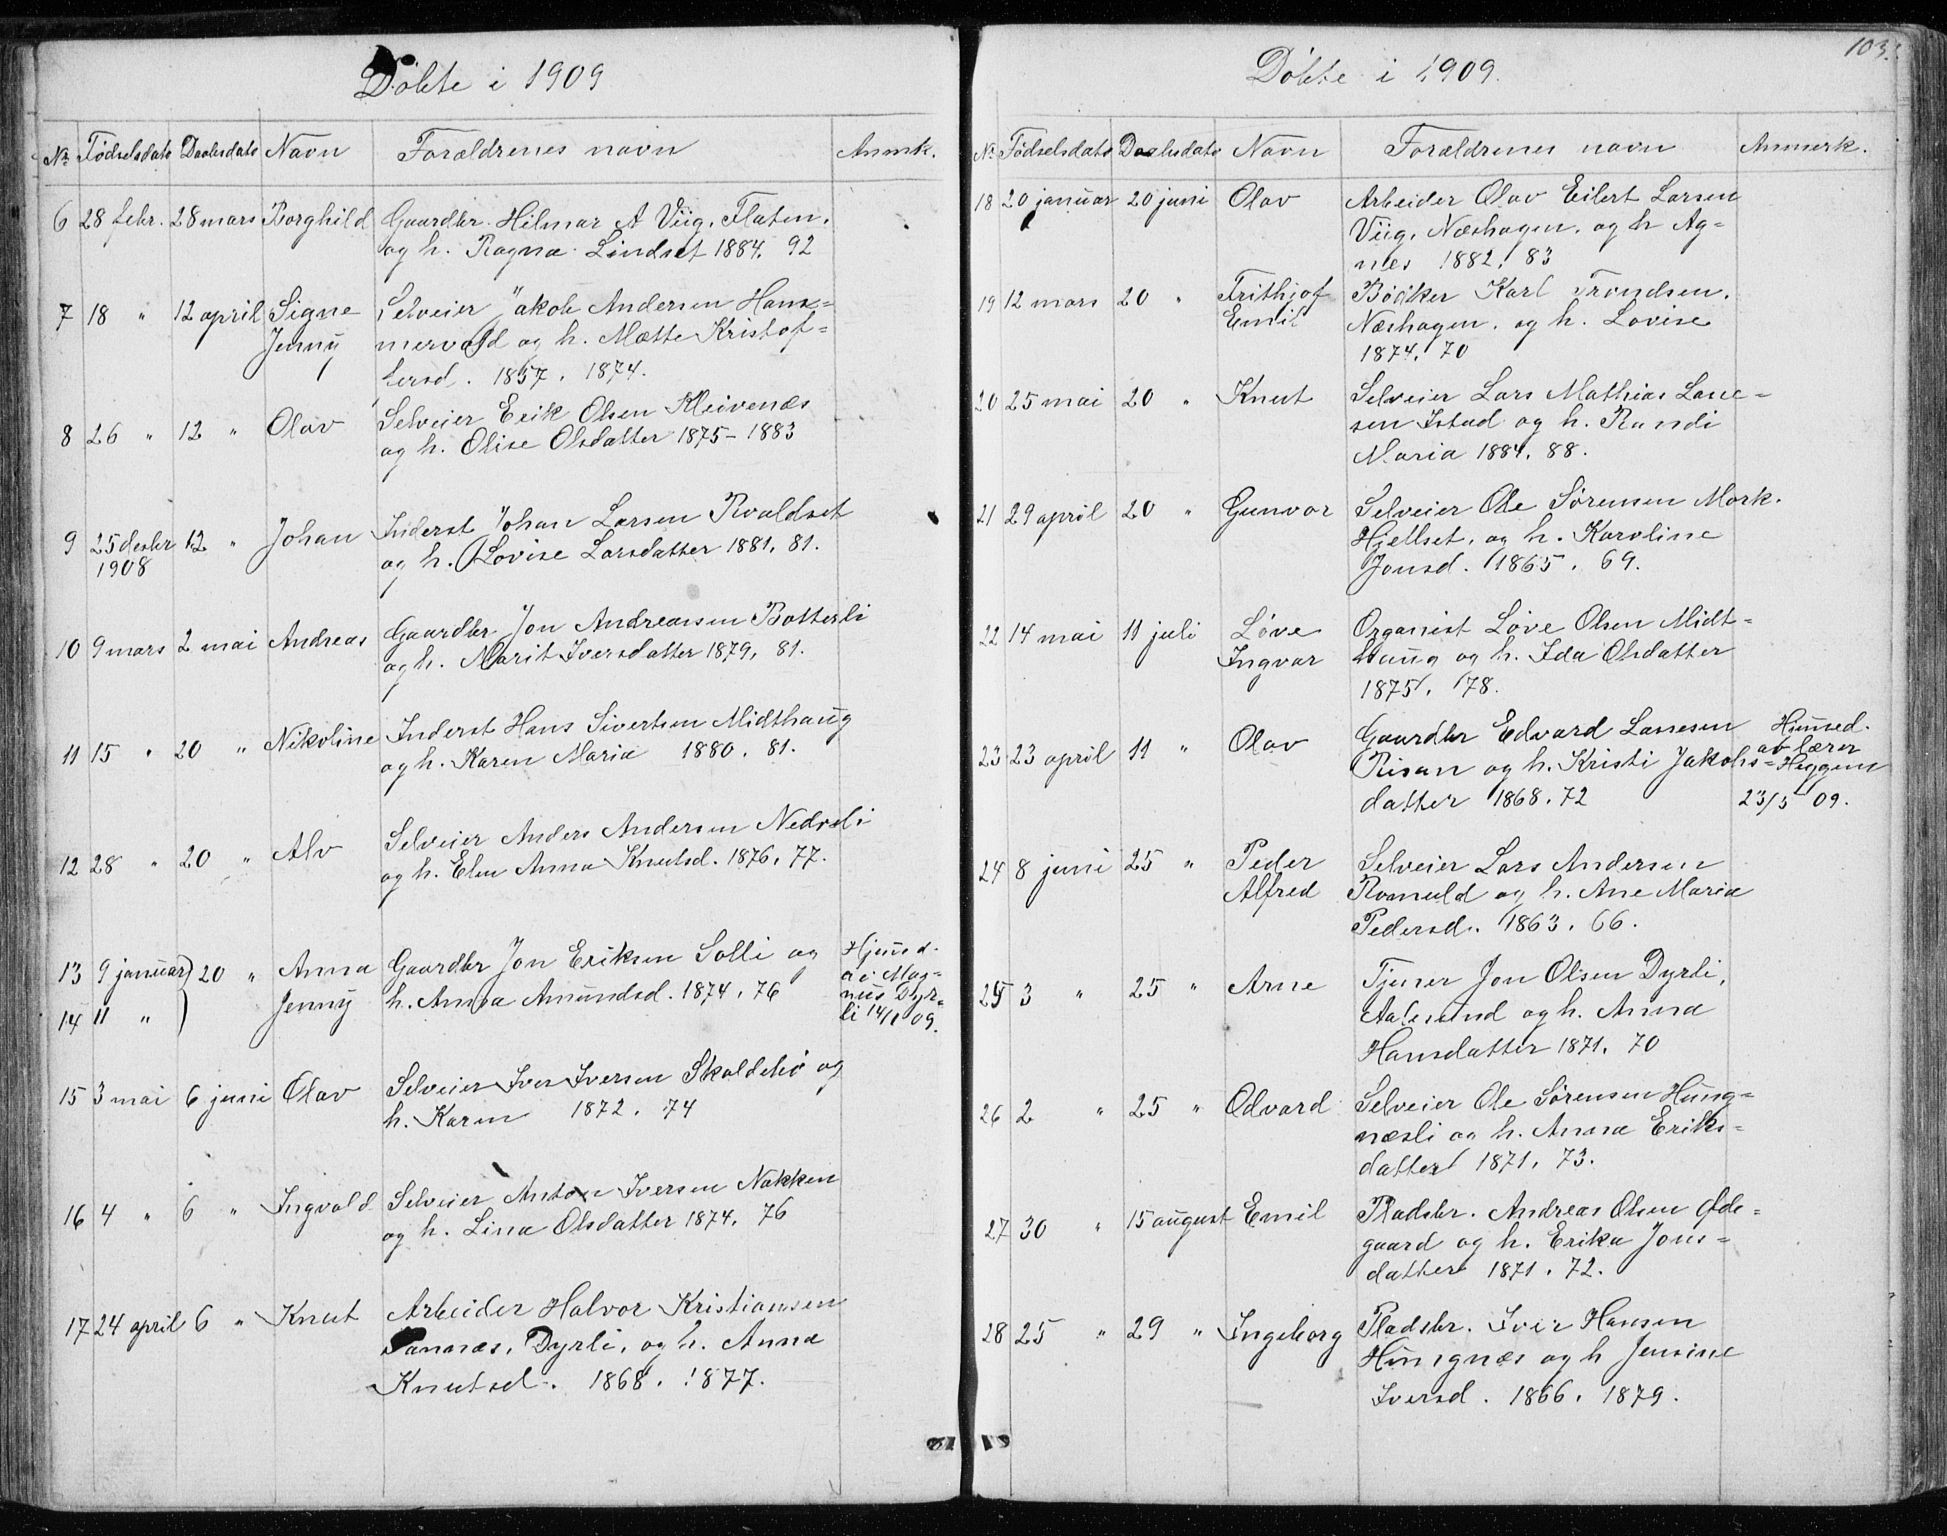 Døbte i 1909
Nr. Fødselsdato Daabsdato Navn Forældrenes navn Anmk.
6 28 febr. 28 mars Borghild Gaardbr. Hilmar A Viig, Flaten,
og h. Ragna Lindset 1884. 92
7 18 " 12 april Signe Selveier Jakob Andersen Ham-
Jenny mervold og h. Mætte Kristof-
fersd. 1857. 1874.
8 26 " 12 " Olav Selveier Erik Olsen Kleivenæs
og h. Olise Olsdatter 1875-1883
9 25 desbr 12 " Johan Inderst Johan Larsen Roaldset
1908 og h. Lovise Larsdatter 1881. 81.
10 9 mars 2 mai Andreas Gaardbr Jon Andreassen Botterli
og h. Marit Iversdatter 1879, 81.
11 15 " 20 " Nikoline Inderst Hans Sivertsen Midthaug
og h. Karen Maria 1880. 81.
12 28 " 20 " Alv Selveier Anders Andersen Nedreli
og h. Elen Anna Knutsd. 1876. 77.
13 9 januar) 20 " Anna Gaardbr Jon Eriksen Solli og Hjemd.
14 11 " ) Jenny h. Anna Amundsd. 1874. 76 a i Mag-
nus Dyr-
li 14/1 09.
15 3 mai 6 juni Olav Selveier Iver Iversen Skaldehø og
h. Karen 1872. 74
16 4 " 6 " Ingvald Selveier Anton Iversen Nakken
og h. Lina Olsdatter 1874. 76
17 24 april 6 " Knut Arbeider Halvor Kristiansen
Sannæs, Dyrli, og h. Anna
Knutsd. 1868. 1877.
103.
Døbte i 1909.
Nr. Fødselsdato Daabsdato Navn Forældrenes navn Anmerk.
18 20 januar 20 juni Olav Arbeider Olav Eilert Larsen
Viig, Næshagen, og h Ag-
nes 1882. 83
19 12 mars 20 " Frithjof Bødker Karl Trondsen,
Emil Næshagen, og h. Lovise
1874. 70
20 25 mai 20 " Knut Selveier Lars Mathias Lasse-
sen Istad og h. Randi
Maria 1884. 88.
21 29 april 20 " Gunvor Selveier Ole Sørensen Mork.
Hjellset, og h. Karoline
Jonsd. 1865. 69.
22 14 mai 11 juli Løve Organist Løve Olsen Midt-
Ingvar haug og h. Ida Olsdatter
1875. 78.
23 23 april 11 " Olav Gaardbr Edvard Lassesen Hjemmed.
Risan og h. Kristi Jakobs- av lærer
datter 1868. 72 Heggem
23/5 09.
24 8 juni 25 " Peder Selveier Lars Andersen
Alfred Romuld og h. Ane Maria
Pedersd. 1863. 66.
25 3 " 25 " Arne Tjener Jon Olsen Dyrli,
Aalesund og h. Anna
Hansdatter 1871. 70
26 2 " 25 " Odvard Selveier Ole Sørensen Hung-
næsli og h. Anna Eriks-
datter 1871. 73.
27 30 " 15 august Emil Pladsbr. Andreas Olsen Øde-
gaard og h. Erika Jons-
datter 1871. 72.
28 25 " 29 " Ingeborg Pladsbr. Iver Hansen
Hungnæs og h Jensine
Iversd. 1866. 1879.